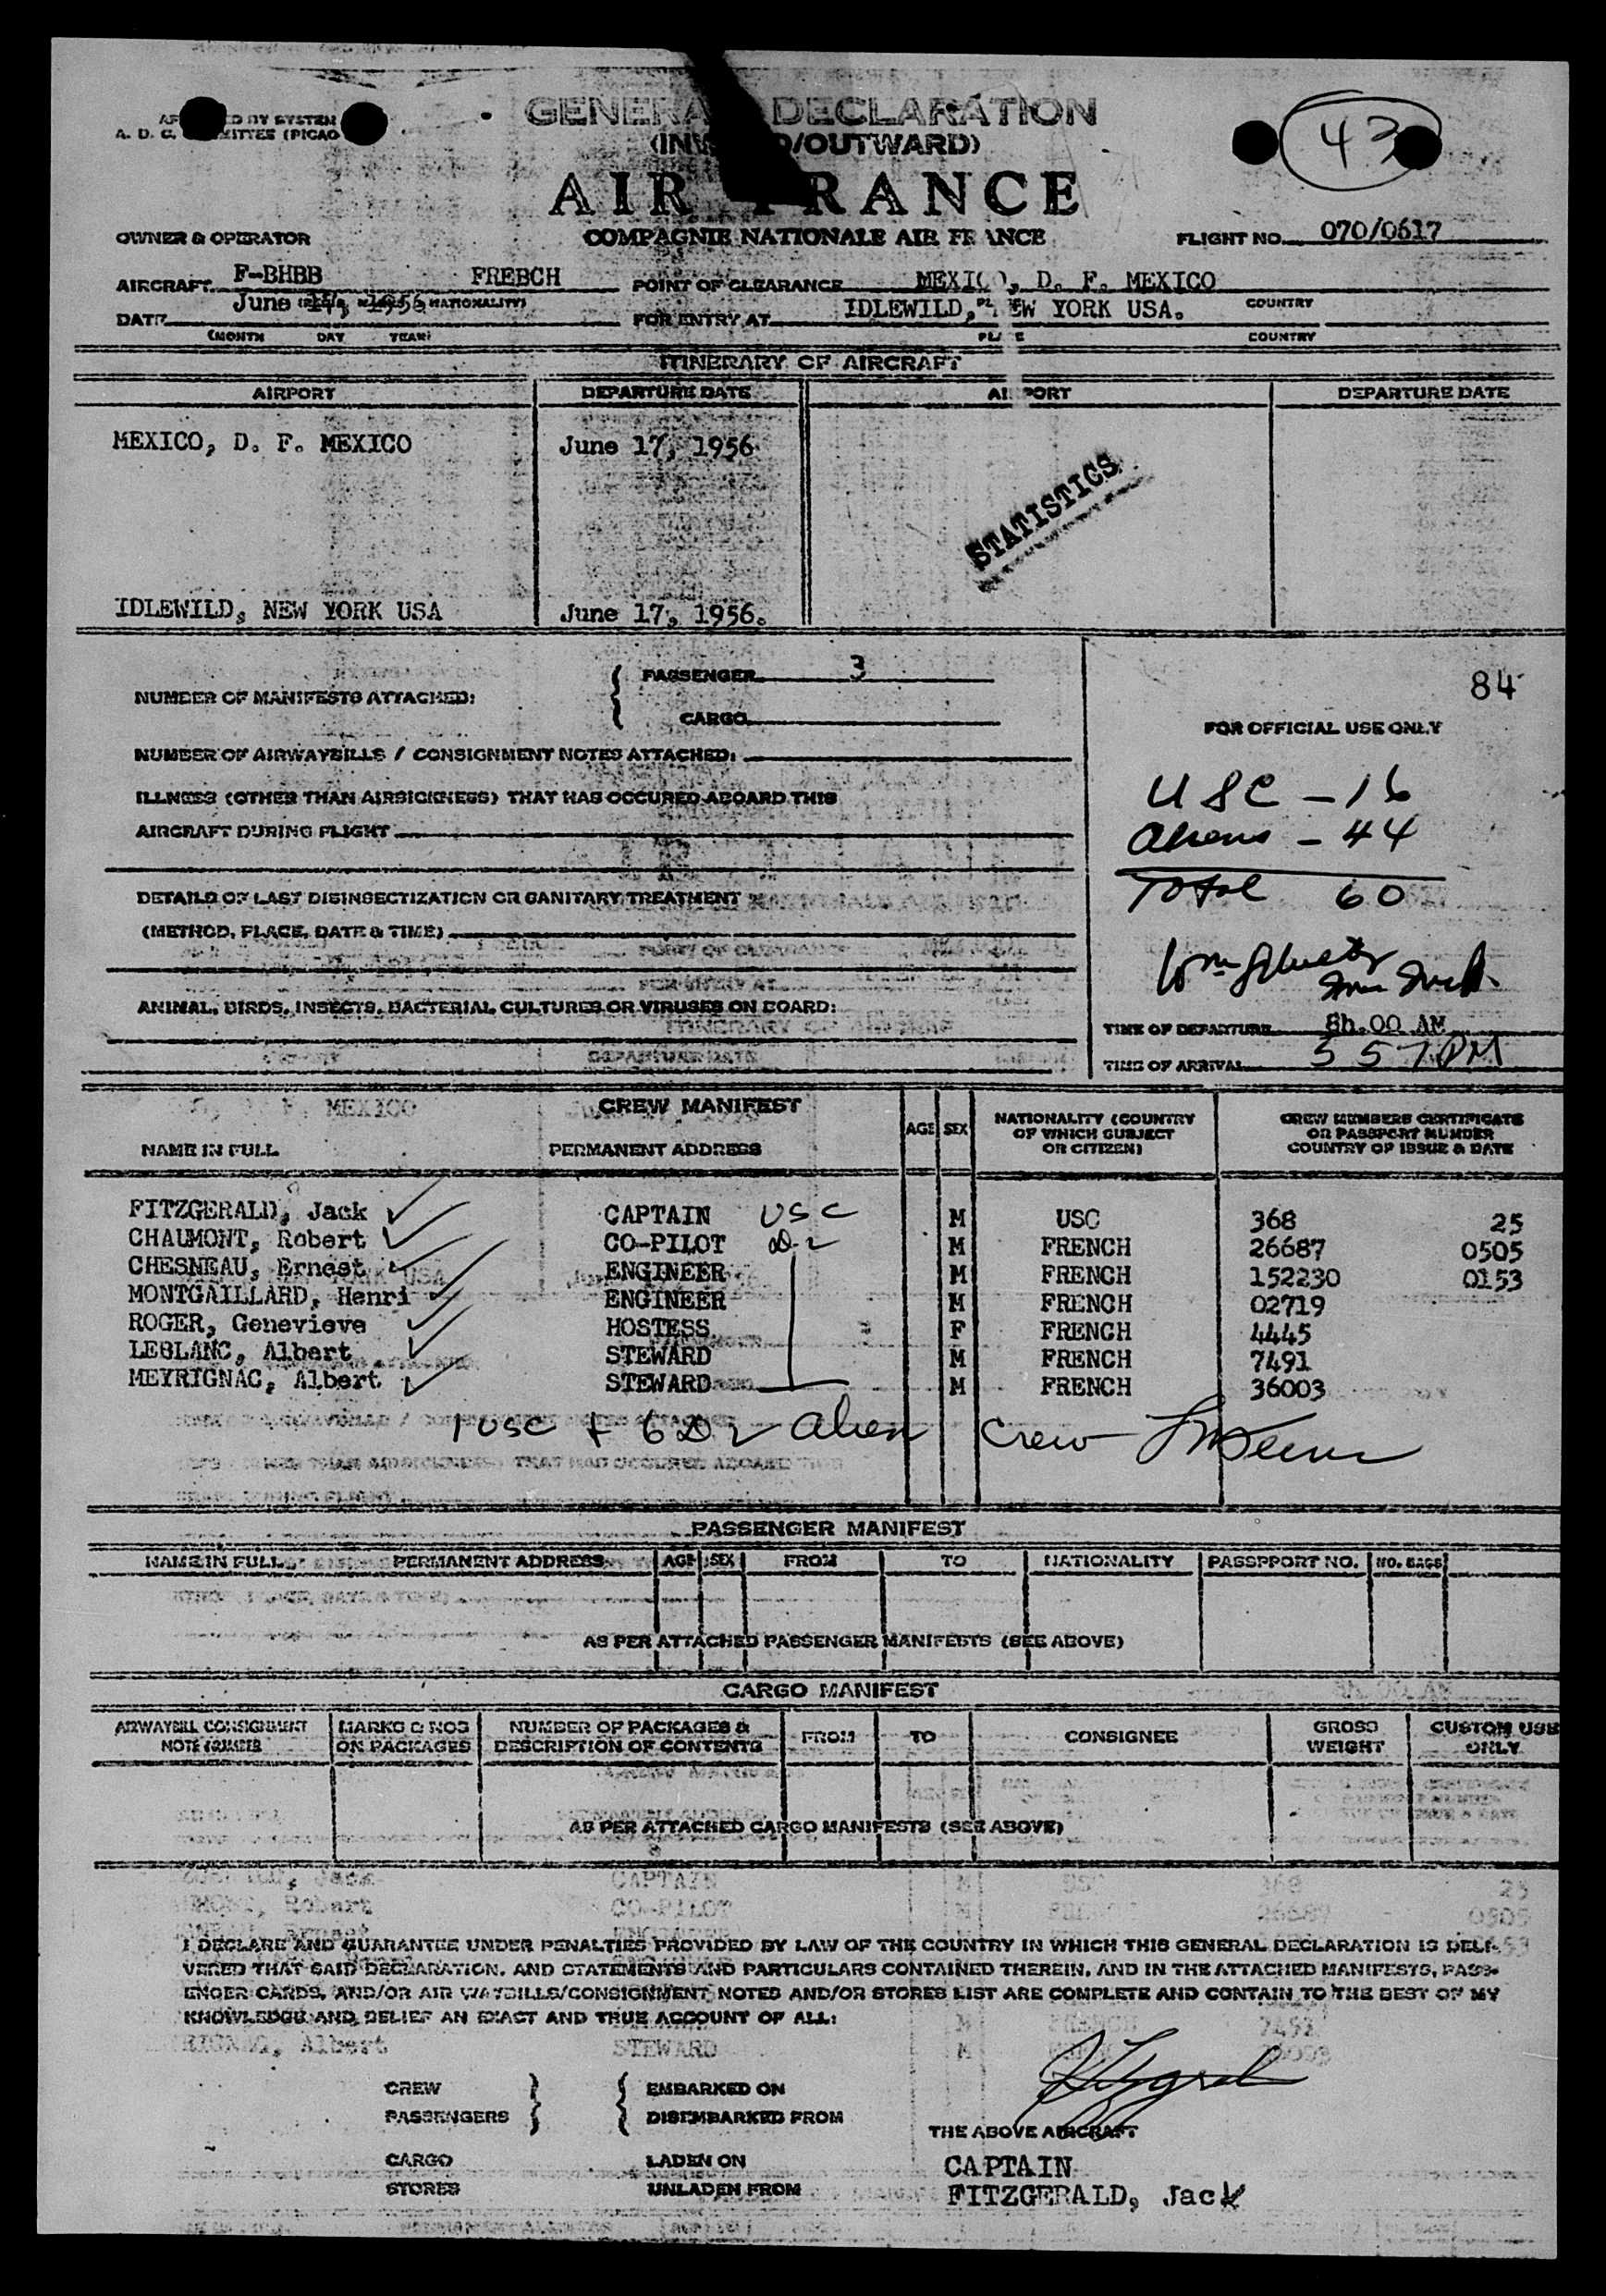 A. D. C.
BY SYSTEM
(PICAO
43
GENERA DECLARATION
(IN D/OUTWARD)
AIR FRANCE
OWNER & OPERATOR
COMPAGNIE NATIONALE AIR FRANCE
FLIGHT NO. 070/0617
AIRCRAFT F-BHBB FREBCH
POINT OF CLEARANCE MEXICO, D. F. MEXICO
NATIONALITY)
COUNTRY
DATE June 17, 1956
FOR ENTRY AT IDLEWILD, NEW YORK USA.
(MONTH DAY YEAR)
PLACE COUNTRY
ITINERARY OF AIRCRAFT
AIRPORT DEPARTURE DATE AIRPORT DEPARTURE DATE
MEXICO, D. F. MEXICO June 17, 1956
STATISTICS
IDLEWILD, NEW YORK USA June 17, 1956.
NUMBER OF MANIFESTS ATTACHED:
PASSENGER 3
CARGO
84
FOR OFFICIAL USE ONLY
NUMBER OF AIRWAYBILLS / CONSIGNMENT NOTES ATTACHED:
ILLNESS (OTHER THAN AIRSICKNESS) THAT HAS OCCURED ABOARD THIS
AIRCRAFT DURING FLIGHT
USC - 16
aliens - 44
Total 60
DETAILS OF LAST DISINSECTIZATION OR SANITARY TREATMENT
(METHOD, PLACE, DATE & TIME)
ANIMAL, BIRDS, INSECTS, BACTERIAL CULTURES OR VIRUSES ON BOARD:
TIME OF DEPARTURE 8h.00 AM
TIME OF ARRIVAL 5 57 PM
CREW MANIFEST
NAME IN FULL PERMANENT ADDRESS AGE SEX
NATIONALITY (COUNTRY
OF WHICH SUBJECT
OR CITIZEN)
CREW MEMBERS CERTIFICATE
OR PASSPORT NUMBER
COUNTRY OF ISSUE & DATE
FITZGERALD, Jack CAPTAIN USC M USC 368 25
CHAUMONT, Robert CO-PILOT D-2 M FRENCH 26687 0505
CHESNEAU, Ernest ENGINEER M FRENCH 152230 0153
MONTGAILLARD, Henri ENGINEER M FRENCH 02719
ROGER, Genevieve HOSTESS F FRENCH 4445
LEBLANC, Albert STEWARD M FRENCH 7491
MEYRIGNAC, Albert STEWARD M FRENCH 36003
1 USC + 6 D2 alien crew
PASSENGER MANIFEST
NAME IN FULL PERMANENT ADDRESS AGE SEX FROM TO NATIONALITY PASSPPORT NO. NO. BAGS
AS PER ATTACHED PASSENGER MANIFESTS (SEE ABOVE)
CARGO MANIFEST
AIRWAYBILL CONSIGNMENT
NOTE NUMBER
MARKS & NOS
ON PACKAGES
NUMBER OF PACKAGES &
DESCRIPTION OF CONTENTS
FROM TO CONSIGNEE
GROSS
WEIGHT
CUSTOM USE
ONLY
AS PER ATTACHED CARGO MANIFESTS (SEE ABOVE)
I DECLARE AND GUARANTEE UNDER PENALTIES PROVIDED BY LAW OF THE COUNTRY IN WHICH THIS GENERAL DECLARATION IS DELI-
VERED THAT SAID DECLARATION, AND STATEMENTS AND PARTICULARS CONTAINED THEREIN, AND IN THE ATTACHED MANIFESTS, PASS-
ENGER CARDS, AND/OR AIR WAYBILLS/CONSIGNMENT NOTES AND/OR STORES LIST ARE COMPLETE AND CONTAIN TO THE BEST OF MY
KNOWLEDGE AND BELIEF AN EXACT AND TRUE ACCOUNT OF ALL:
CREW
PASSENGERS
EMBARKED ON
DISEMBARKED FROM
THE ABOVE AIRCRAFT
CARGO
STORES
LADEN ON
UNLADEN FROM
CAPTAIN
FITZGERALD, Jack